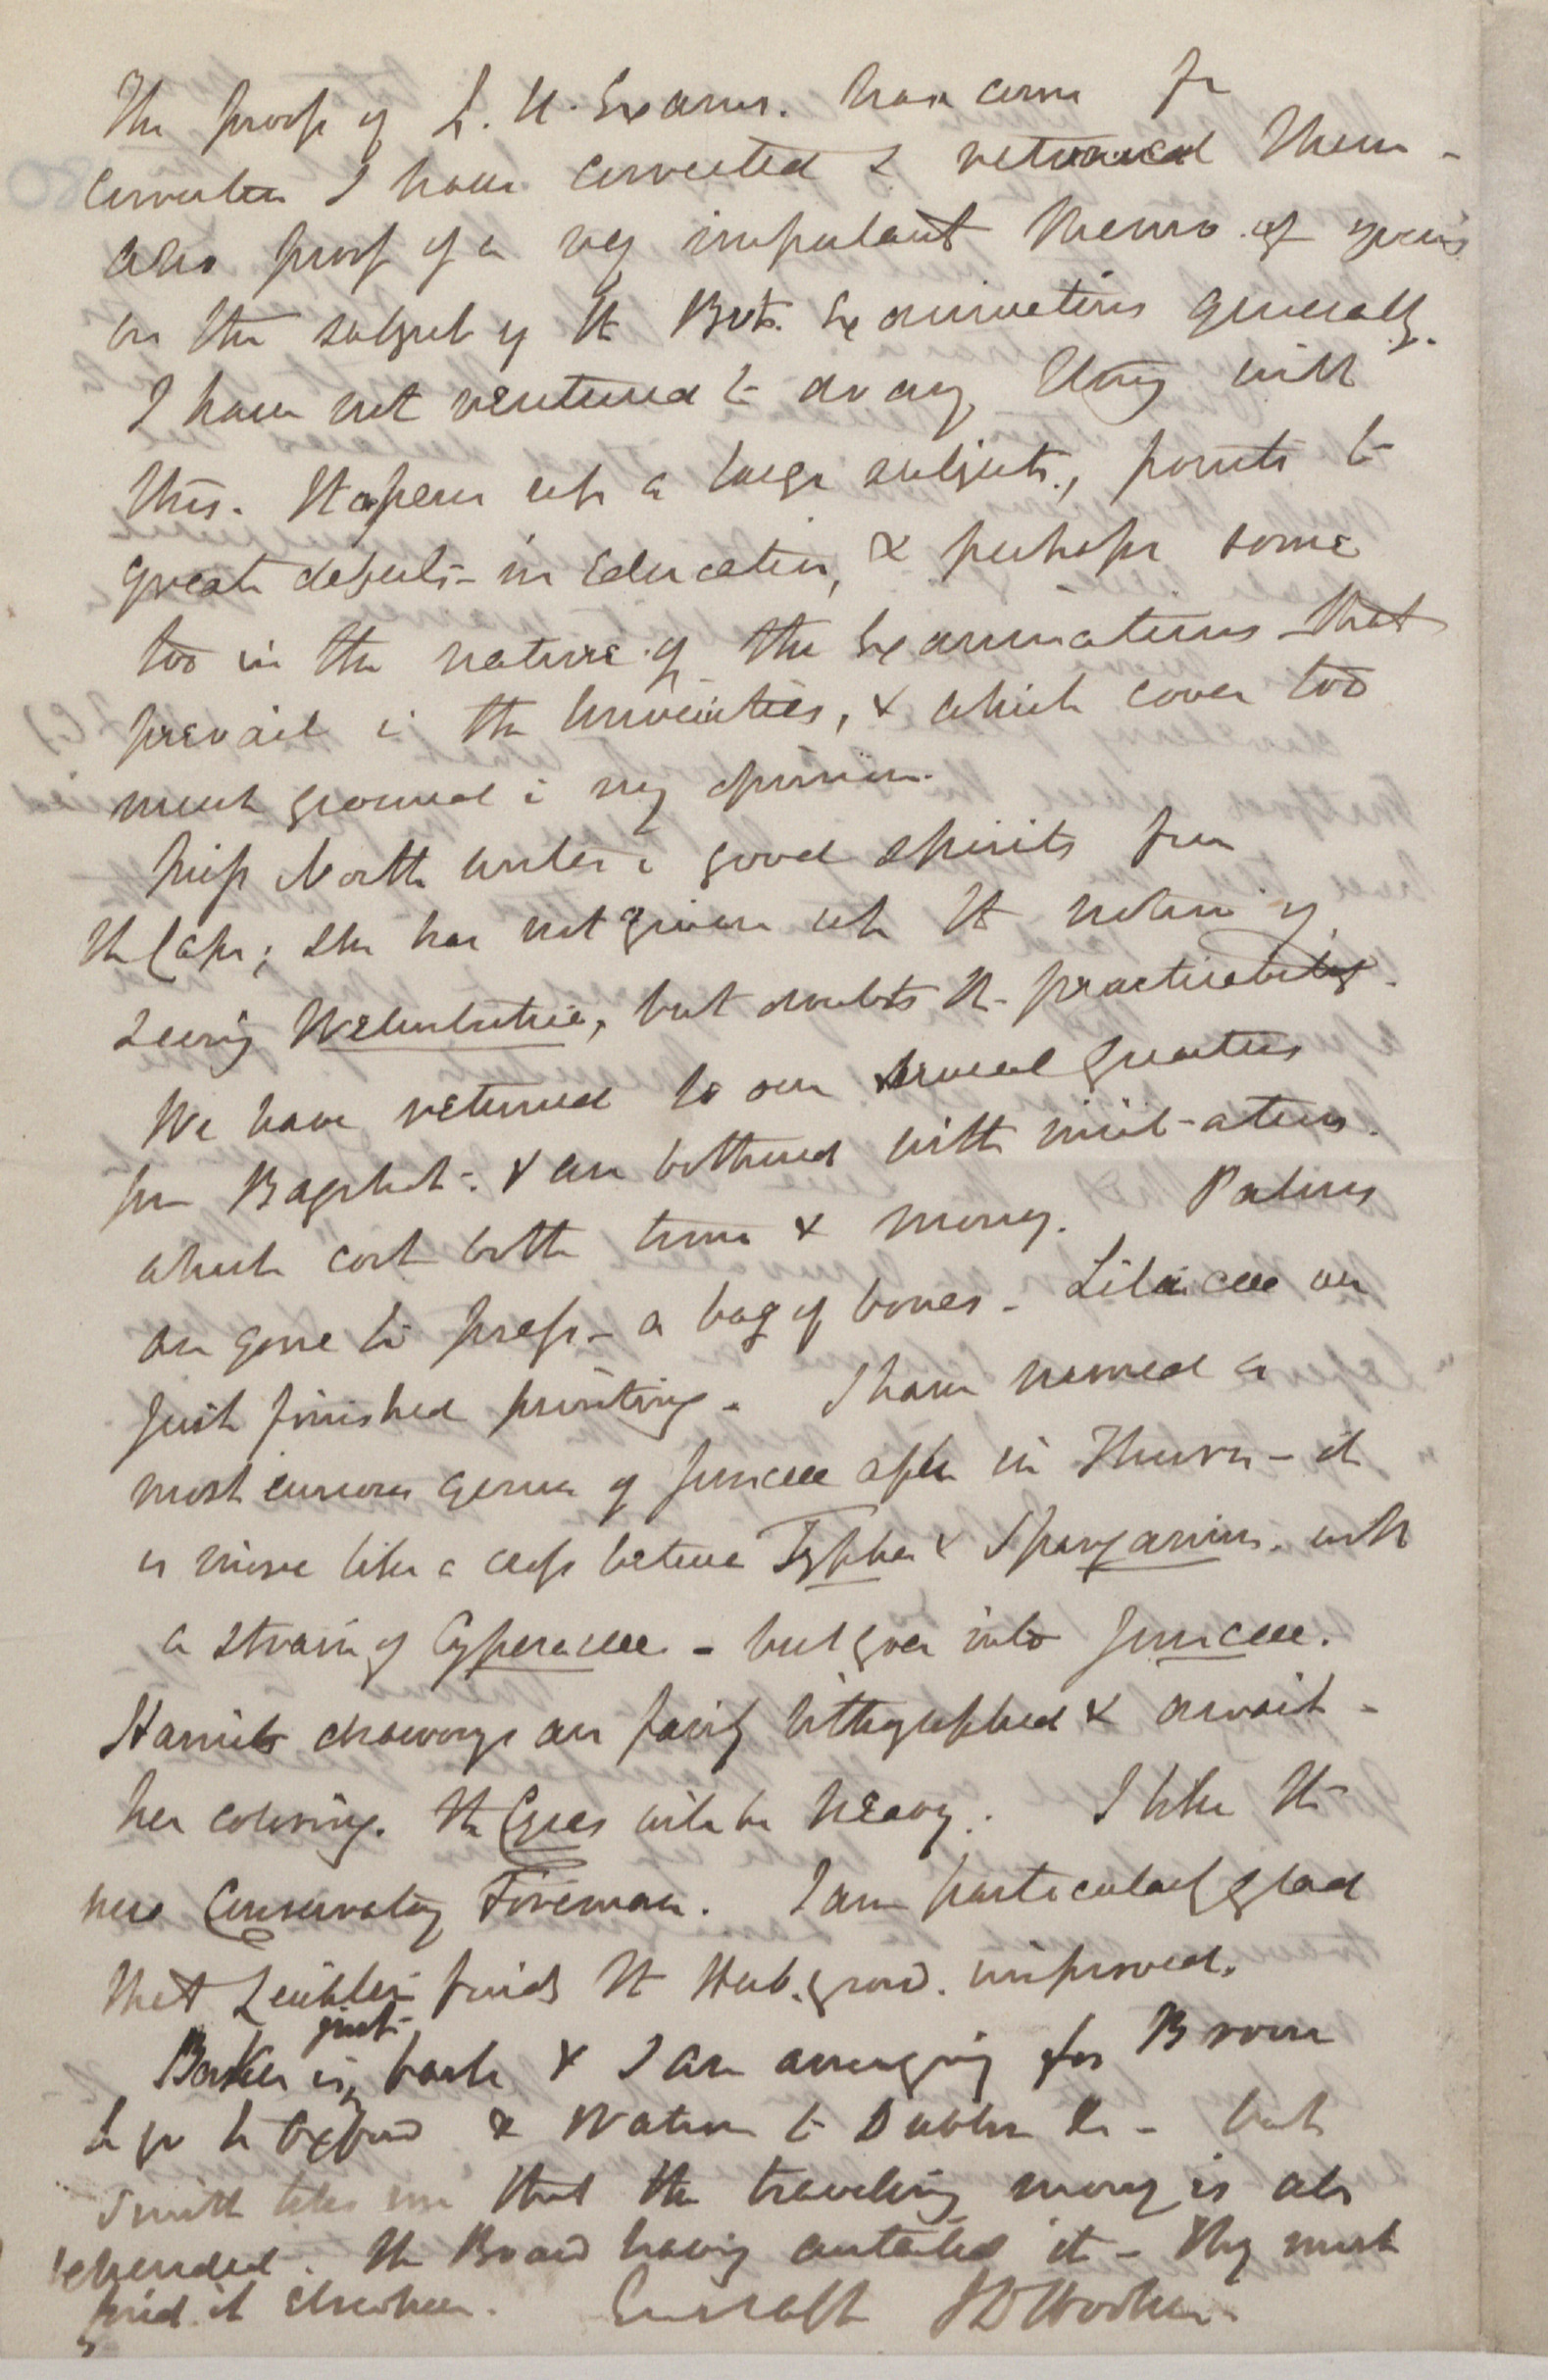 The proofs of L. U. Exams. have come for
correction I have corrected & returned them -
also proof of a very important Memo. of yours
on the subject of the Bot. Examinations generally.
I have not ventured to do any thing with
this. It opens up a large subject, points to
great defects in Education, & perhaps some
too in the nature of the Examinations that
prevail in the Universities, & which cover too
much ground in my opinion.
Miss North writes in good spirits from
the Cape; she has not given up the notion of
seeing Welwitschia, but doubts the practicability.
We have returned to our usual quarters
from Bagshot - & are bothered with invitations.
which cost both time & money. Palms
are gone to press - a bag of bones - Liliaceae are
just finished printing. I have named a
most curious genus of Junceae after im Thurn - it
is more like a cross between Typha & Sparganium. with
a strain of Cyperaceae - but goes into Junceae.
Harriets drawings are fairly lithographed & await
her coloring. The Cycas will be heavy. I like the
new Conservatory Foreman. I am particularly glad
that Leichtlin finds the Herb. grod. improved.
Baker is just back & I am arranging for Brown
to go to Oxford & Watson to Dublin &c - but
Smith tells me that the traveling money is all
expended. The Board having curtailed it - They must
find it elsewhere. Ever aff JD Hooker